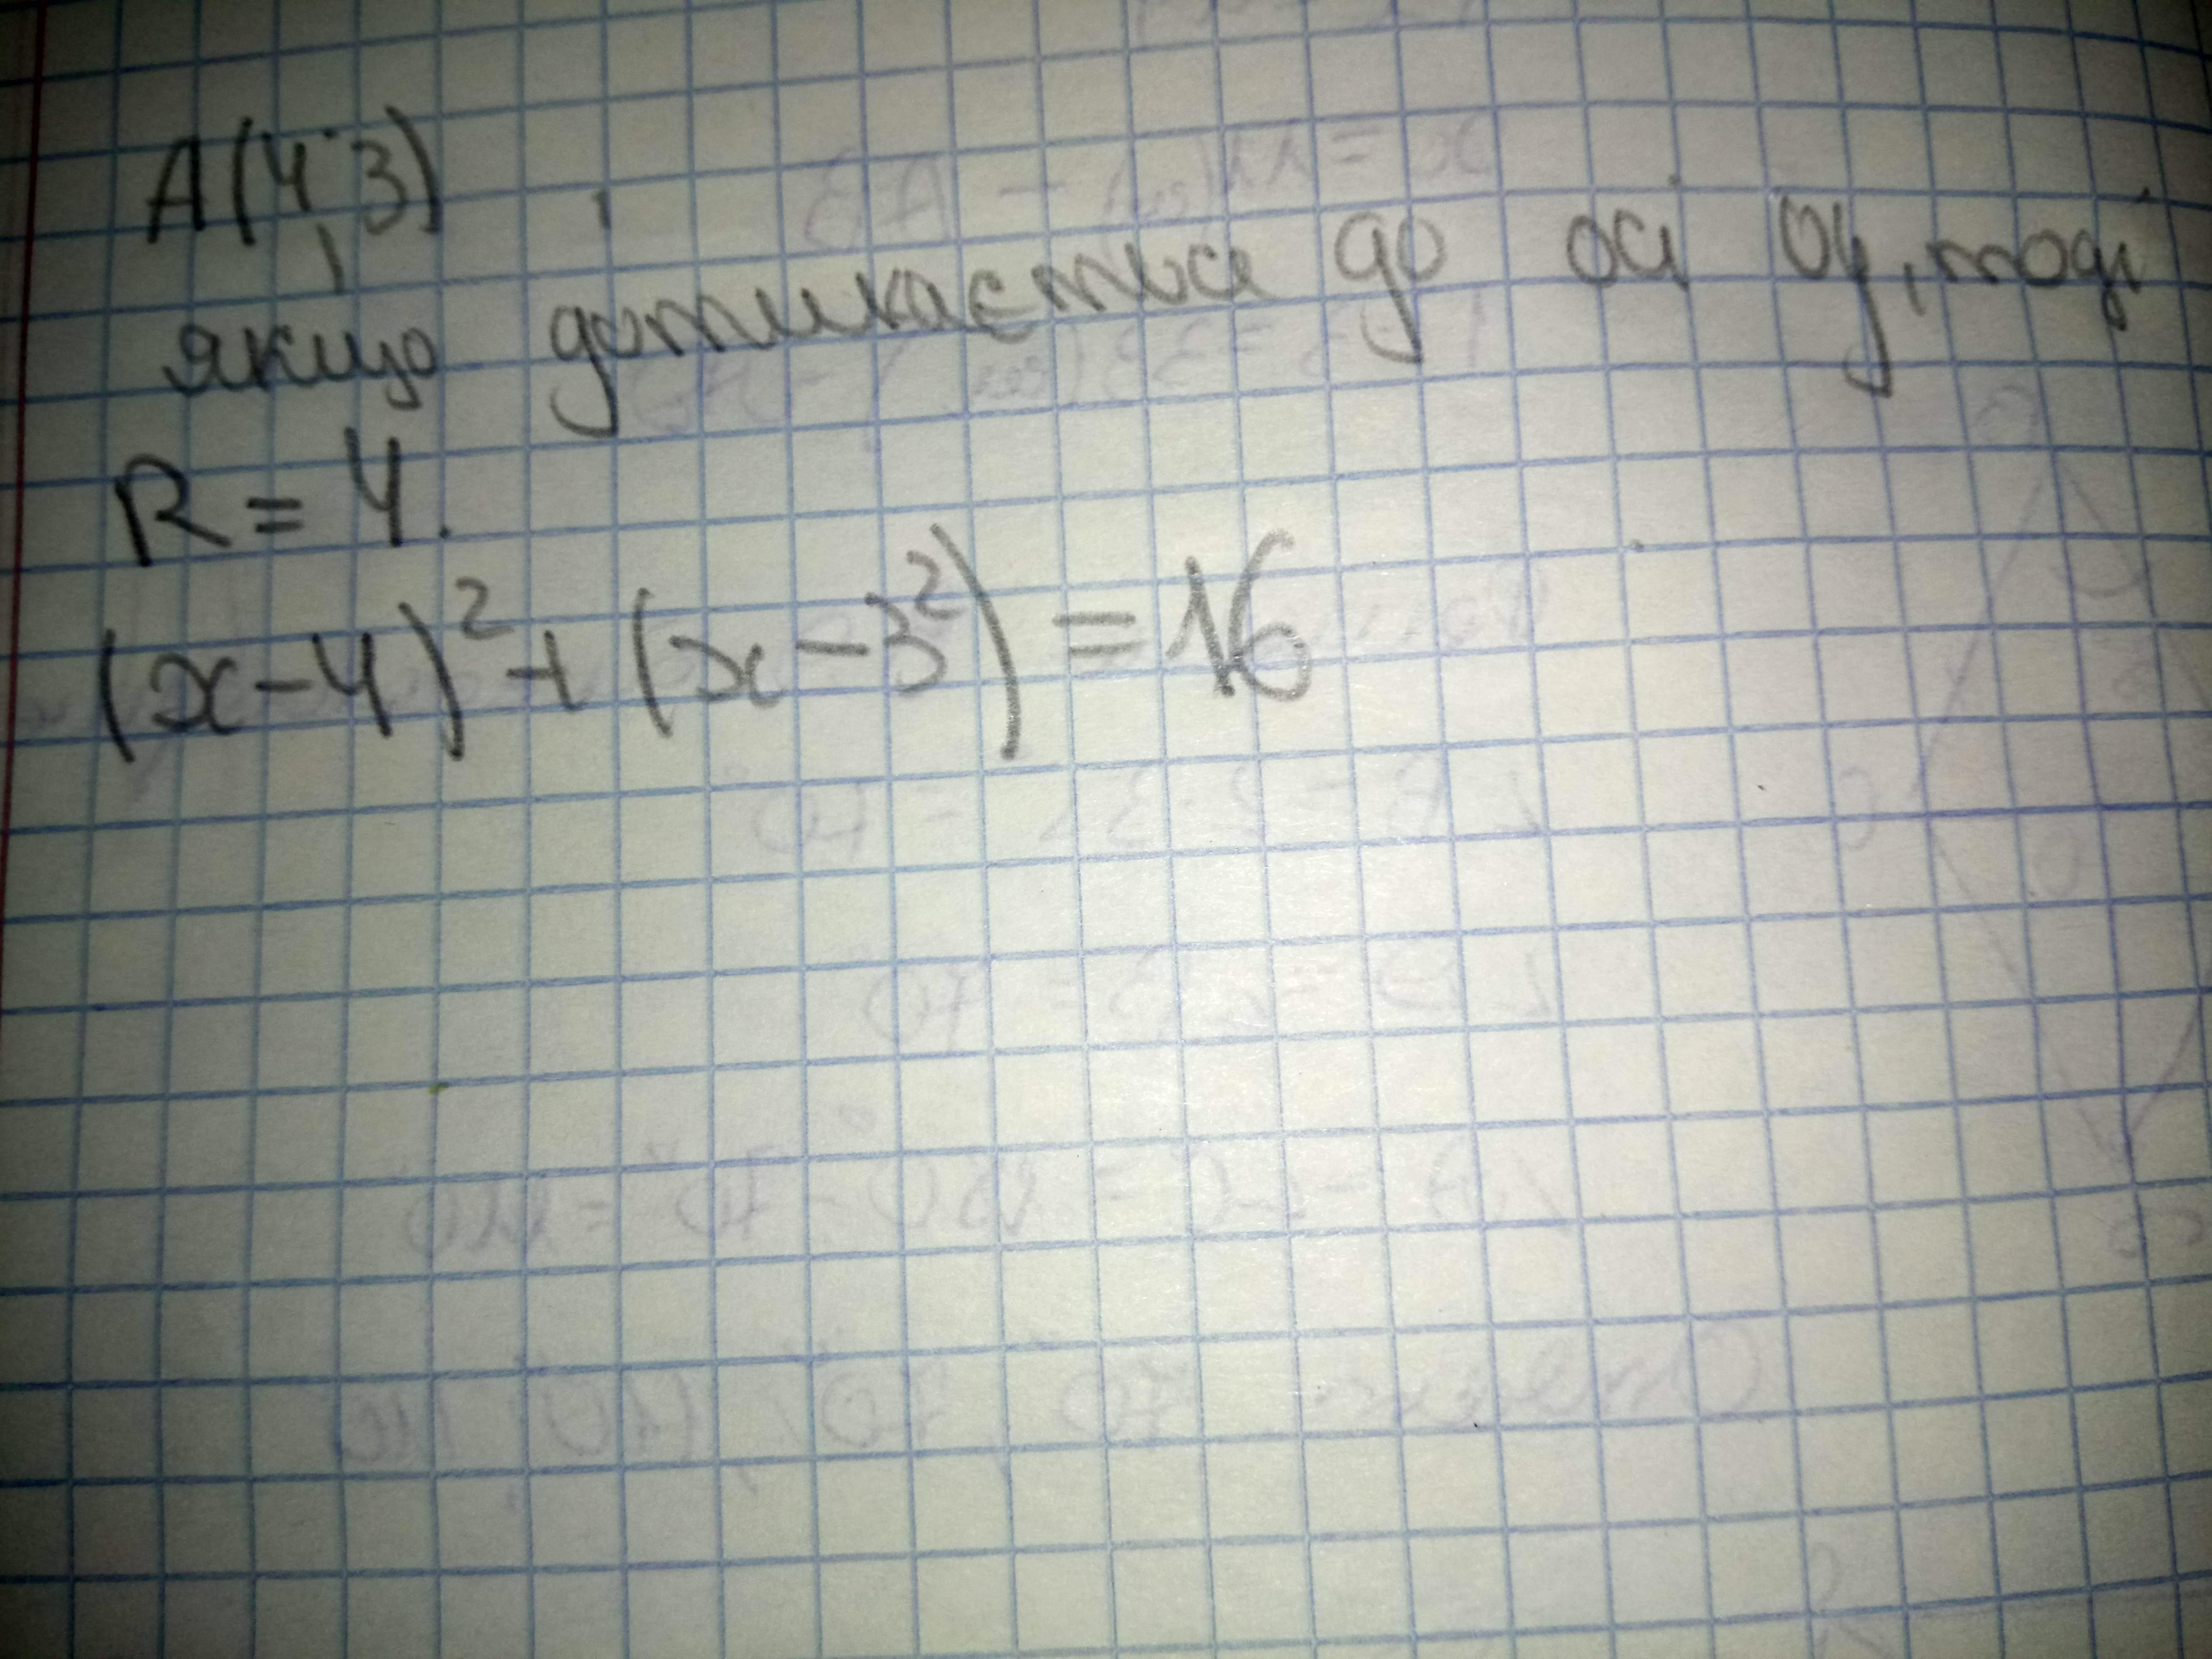 A(4;3)
якщо дотикається до осі Oy, тоді
R = 4.
(x-4)² + (x-3²) = 16